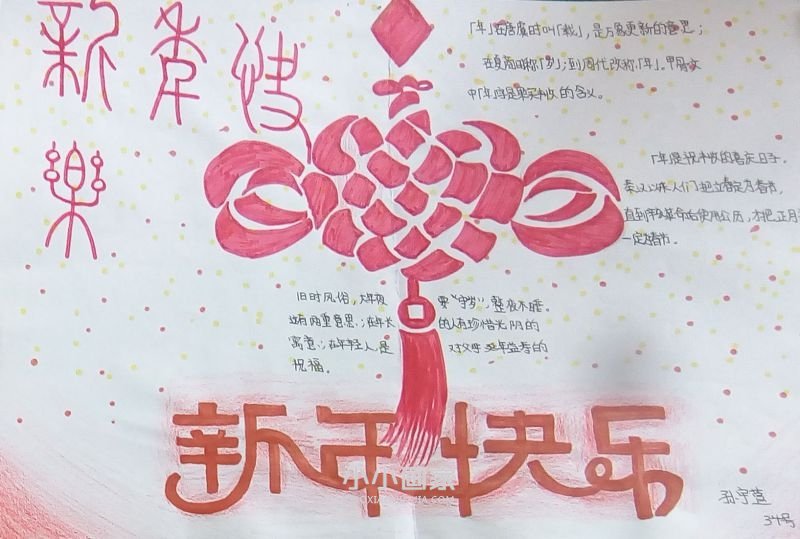 新年快
樂
「年」在唐虞时叫「载」，是万象更新的意思；
在夏商时称「岁」；到周代改称「年」。甲骨文
中「年」字是果实丰收的含义。
「年」是祝丰收的喜庆日子。
秦汉以来人们把立春定为春节，
直到辛亥革命始使用公历，才把正月
一定为春节。
旧时风俗，大年夜 要“守岁”，整夜不睡。
这有两重意思：在年长 的人有珍惜光阴的
寓意；在年轻人，是 对父母延年益寿的
祝福。
新年快乐
小小画家
34号